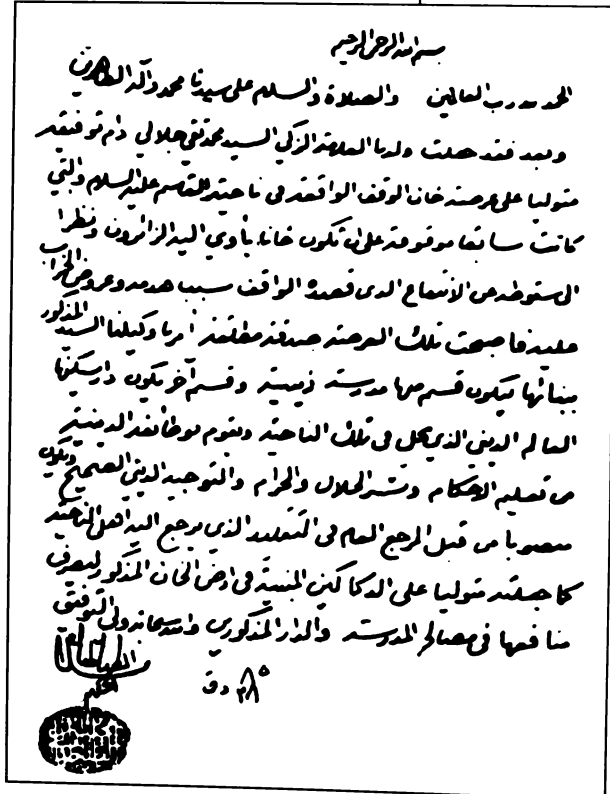 بسم الله الرحمن الرحيم
الحمد لله رب العالمين والصلاة والسلام على سيدنا محمد وآله الطاهرين
وبعد فقد جعلت ولدنا العلامة الزكي السيد محمد تقي جلالي دام توفيقه
متوليا على عرصة خان الوقف الواقعة في ناحية القاسم عليه السلام والتي
كانت سابقا موقوفة على ان تكون خانا يأوي اليه الزائرون ونظرا
الى سقوطه عن الانتفاع الذي قصده الواقف بسبب هدمه وعروض الخراب
عليه فاصبحت تلك العرصة صدقة مطلقة أمرنا وكيلنا السيد المذكور
ببنائها ليكون قسم منها مدرسة دينية وقسم آخر يكون دارا يسكنها
العالم الديني الذي يحل في تلك الناحية ويقوم بوظائفه الدينية
من تعليم الاحكام ونشر الحلال والحرام والتوجيه الديني الصحيح ويكون
منصوبا من قبل المرجع العام في التقليد الذي يرجع اليه اهل الناحية
كما جعلته متوليا على الدكاكين المبنية في ارض الخان المذكور ليصرف
منافعها في مصالح المدرسة والدار المذكورين والله سبحانه ولي التوفيق